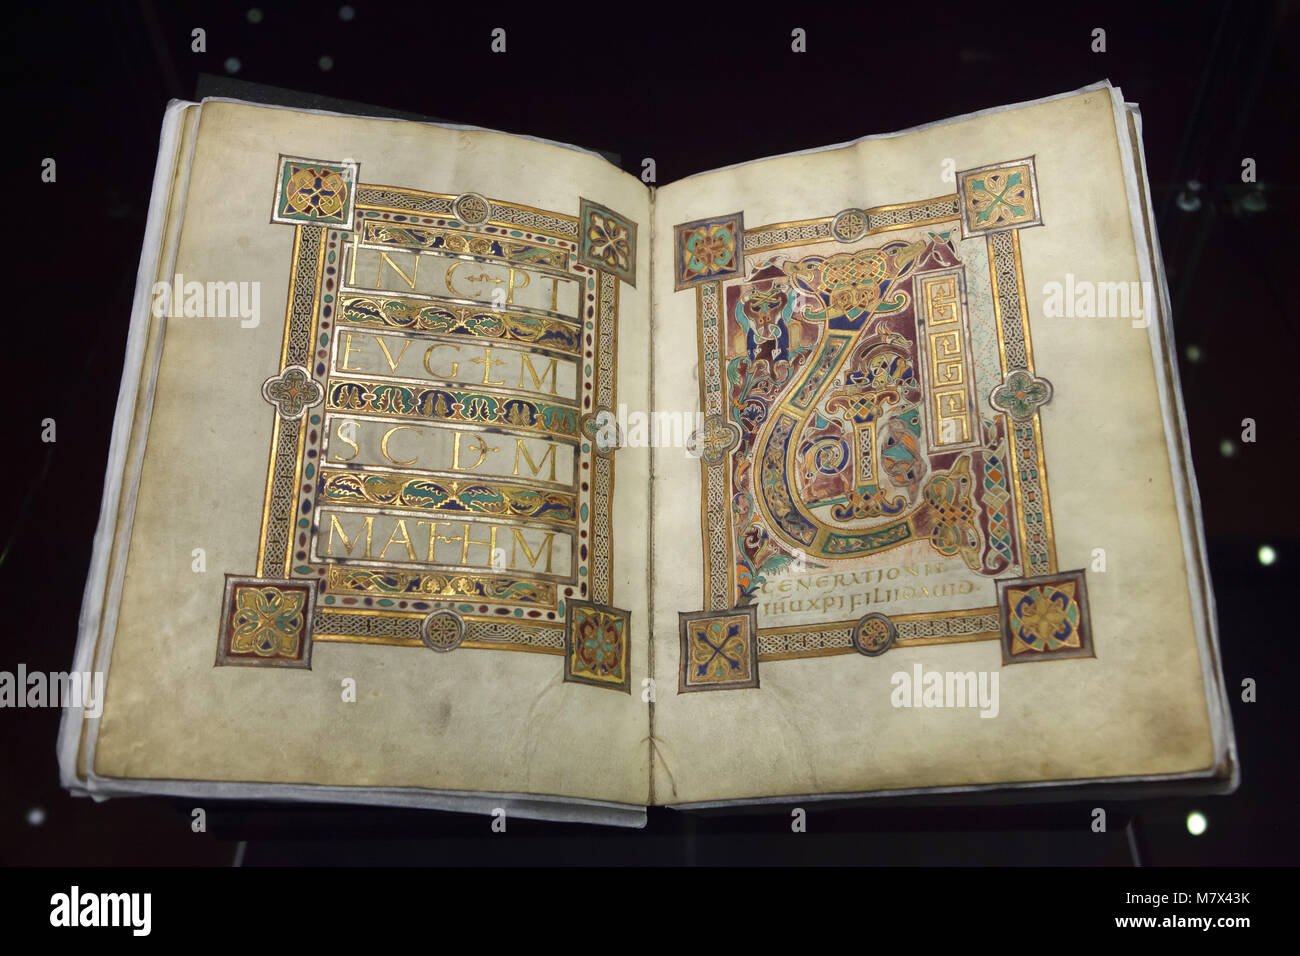 INCPT
EVGLEM
SCDM
MATHM
LI
GENERATIONIS
IHUXPIFILIIDAUID.
alamy
alamy
alamy
alamy
alamy
Image ID: M7X43K
www.alamy.com